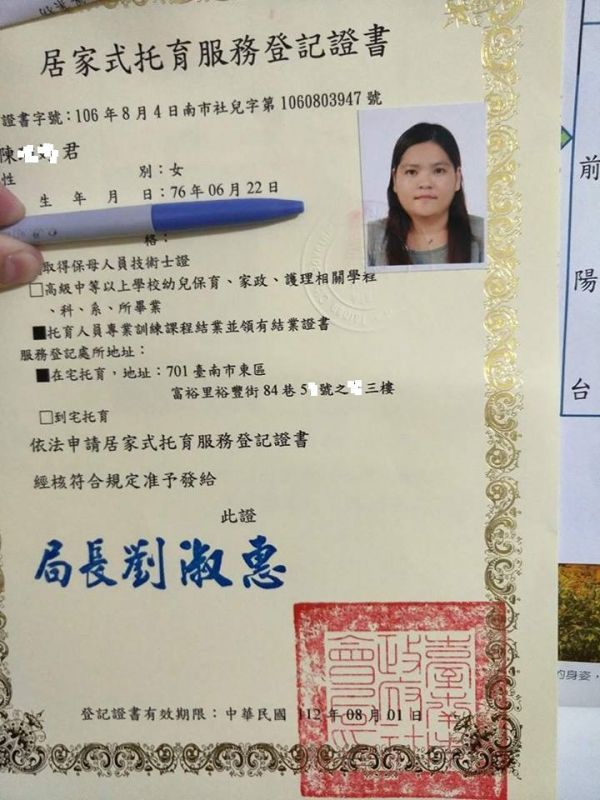 居家式托育服務登記證書
證書字號：106年8月4日南市社兒字第1060803947號
陳 君
性 別：女
生年月日：76年06月22日
格：
取得保母人員技術士證
□高級中等以上學校幼兒保育、家政、護理相關學程
、科、系、所畢業
■托育人員專業訓練課程結業並領有結業證書
服務登記處所地址：
■在宅托育，地址：701臺南市東區
富裕里裕豐街84巷5 號之 三樓
□到宅托育
依法申請居家式托育服務登記證書
經核符合規定准予發給
此證
局長劉淑惠
臺南市政府社會局印
登記證書有效期限：中華民國 112年08月01日
前
陽
台
的身姿，